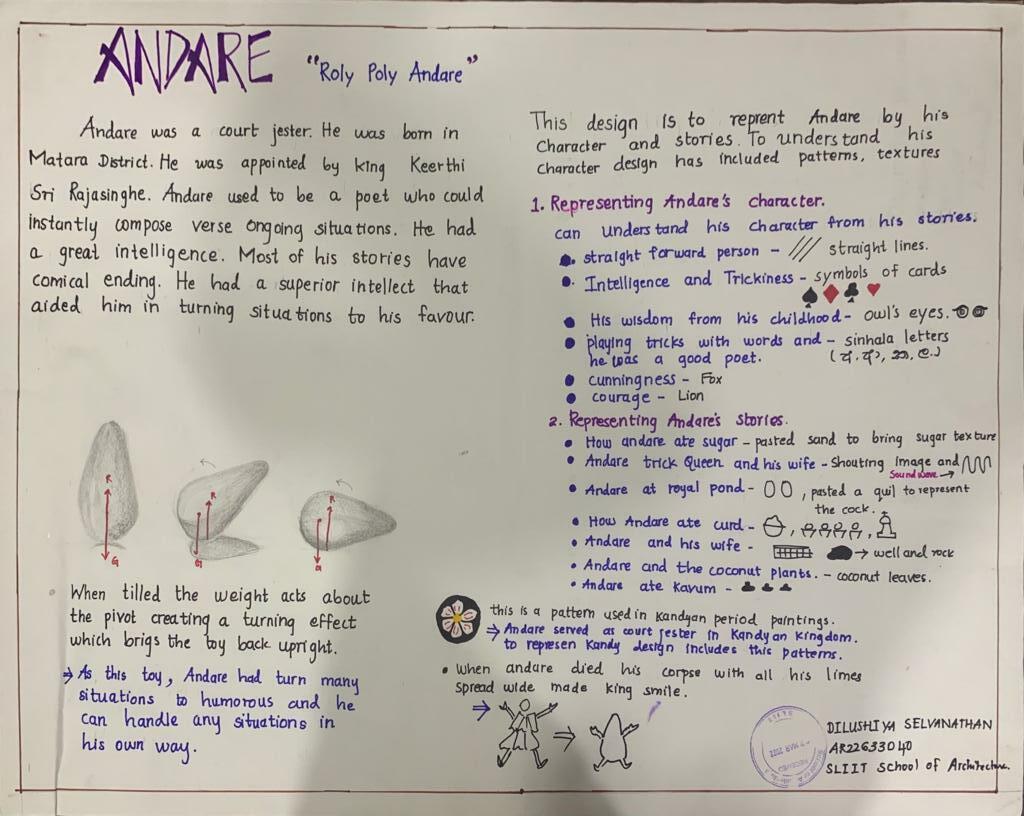 ANDARE
"Roly Poly Andare"
Andare was a court jester. He was born in
Matara District. He was appointed by king Keerthi
Sri Rajasinghe. Andare used to be a poet who could
instantly compose verse ongoing situations. He had
a great intelligence. Most of his stories have
comical ending. He had a superior intellect that
aided him in turning situations to his favour.
R
G
R
G
R
G
When tilled the weight acts about
the pivot creating a turning effect
which brigs the toy back upright.
⇒ As this toy, Andare had turn many
situations to humorous and he
can handle any situations in
his own way.
This design is to reprent Andare by his
Character and stories. To understand his
Character design has included patterns, textures
1. Representing Andare's character.
can understand his character from his stories.
• straight forward person - /// straight lines.
• Intelligence and Trickiness - symbols of cards
♠ ♦ ♣ ♥
• His wisdom from his childhood - owl's eyes.
• playing tricks with words and - sinhala letters
he was a good poet.
• cunningness - Fox
• courage - Lion
2. Representing Andare's stories.
• How andare ate sugar - pasted sand to bring sugar texture
• Andare trick Queen and his wife - Shouting Image and
Sound wave →
• Andare at royal pond - , pasted a quil to represent
the cock.
• How Andare ate curd -
• Andare and his wife - → well and rock
• Andare and the coconut plants. - coconut leaves.
• Andare ate Kavum -
this is a pattern used in Kandyan period paintings.
⇒ Andare served as court jester in Kandyan kingdom.
to represen Kandy design includes this patterns.
• When andare died his corpse with all his limes
spread wide made king smile.
DILUSHIYA SELVANATHAN
AR22633040
SLIIT School of Architecture.